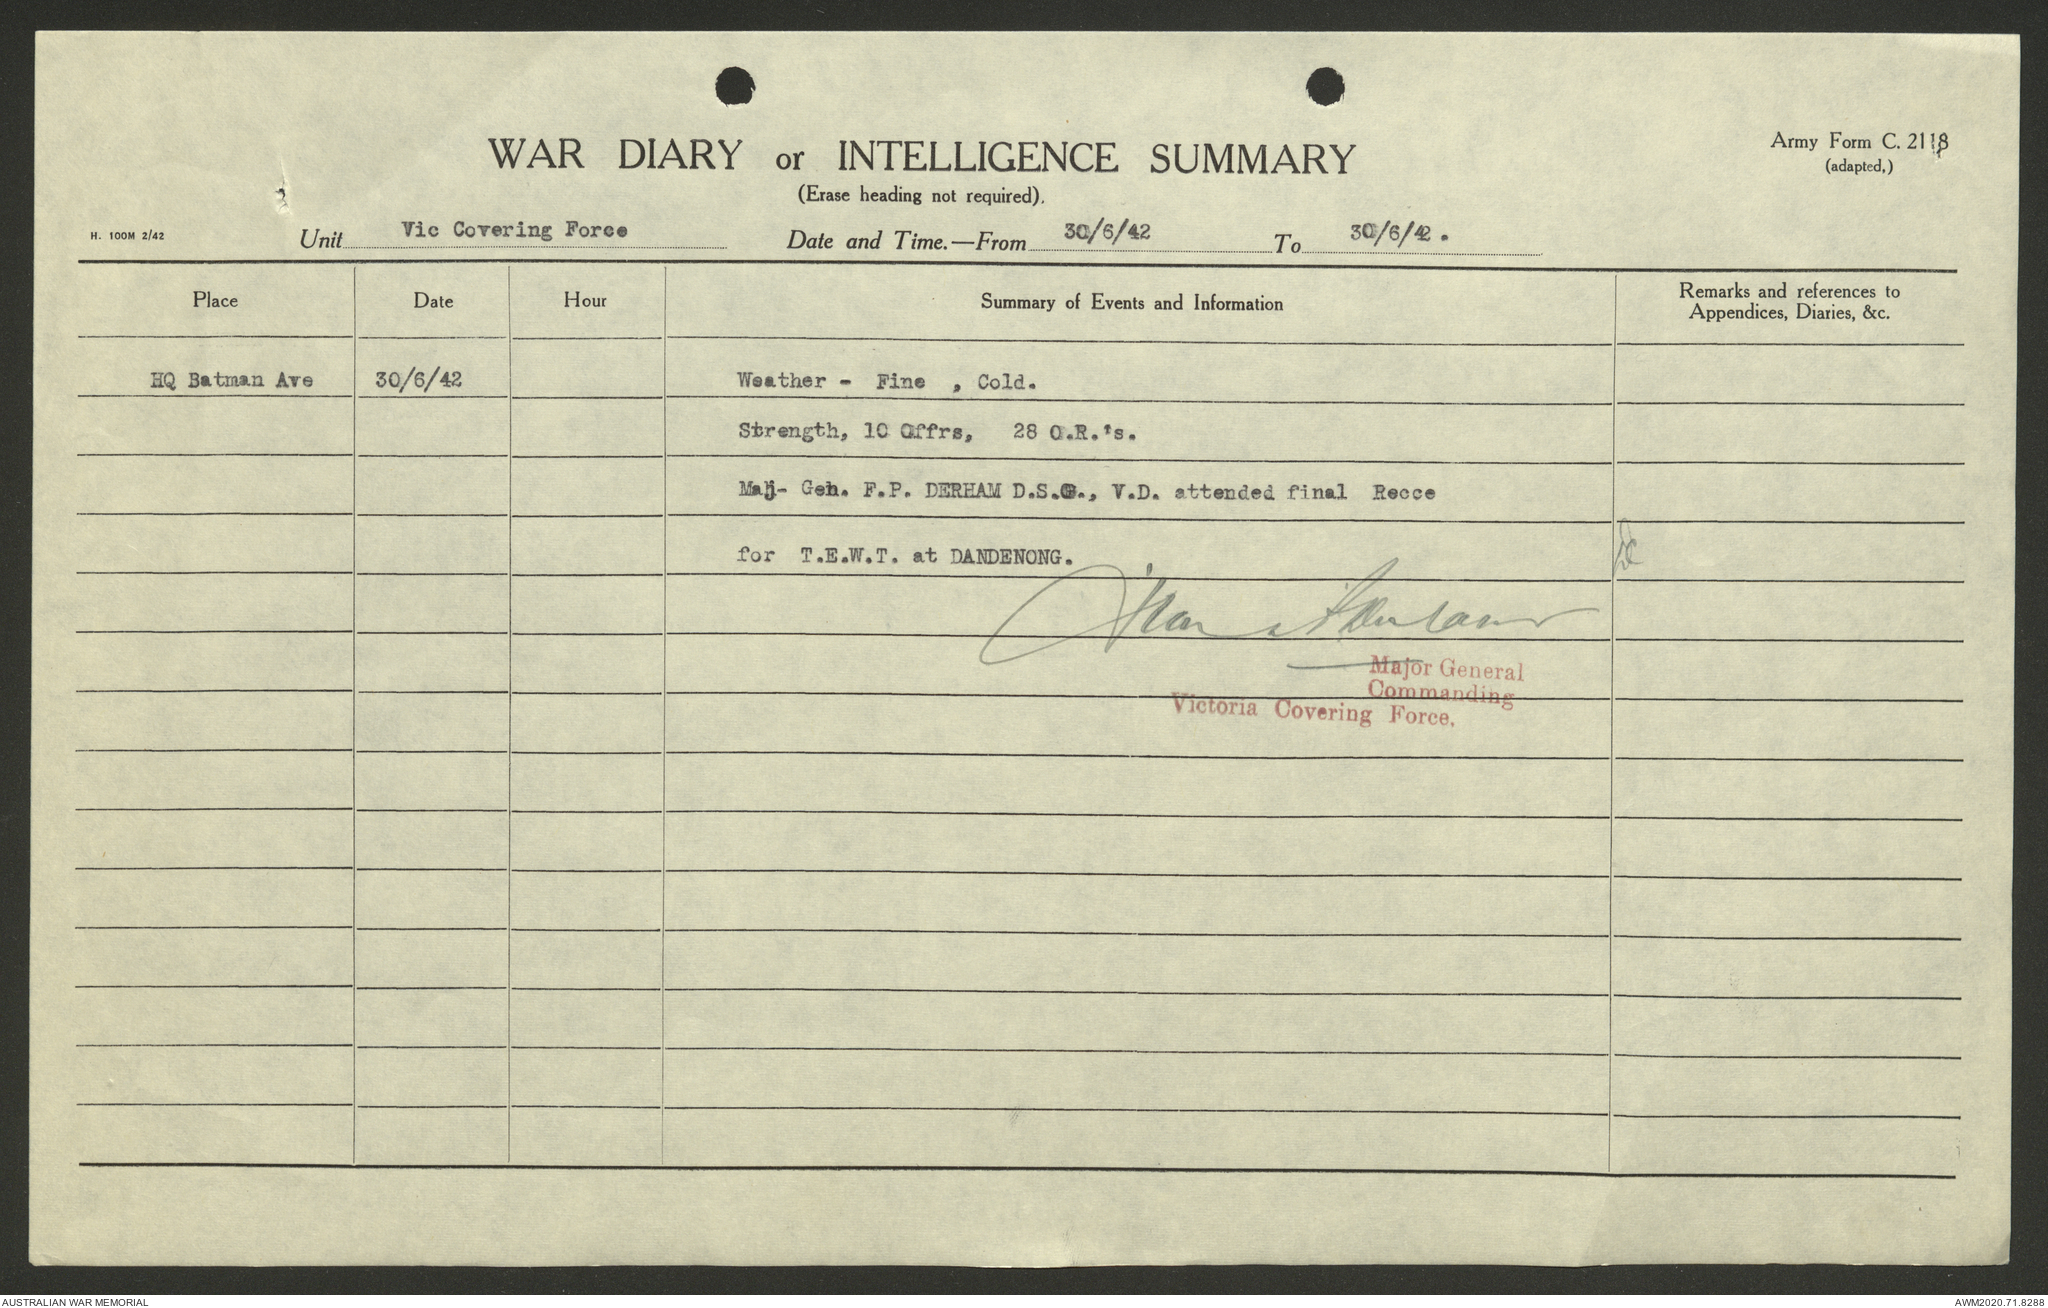 WAR DIARY or INTELLIGENCE SUMMARY
(Erase heading not required).
Army Form C. 2118
(adapted,)
H. 100M 2/42
Unit Vic Covering Force Date and Time.—From 30/6/42 To 30/6/42.
Place Date Hour Summary of Events and Information Remarks and references to
Appendices, Diaries, &c.
HQ Batman Ave 30/6/42 Weather - Fine , Cold.
Strength, 10 Offrs, 28 O.R.'s.
Maj- Gen. F.P. DERHAM D.S.O., V.D. attended final Recce
for T.E.W.T. at DANDENONG.
Major General
Commanding
Victoria Covering Force,
AUSTRALIAN WAR MEMORIAL
AWM2020.71.8288